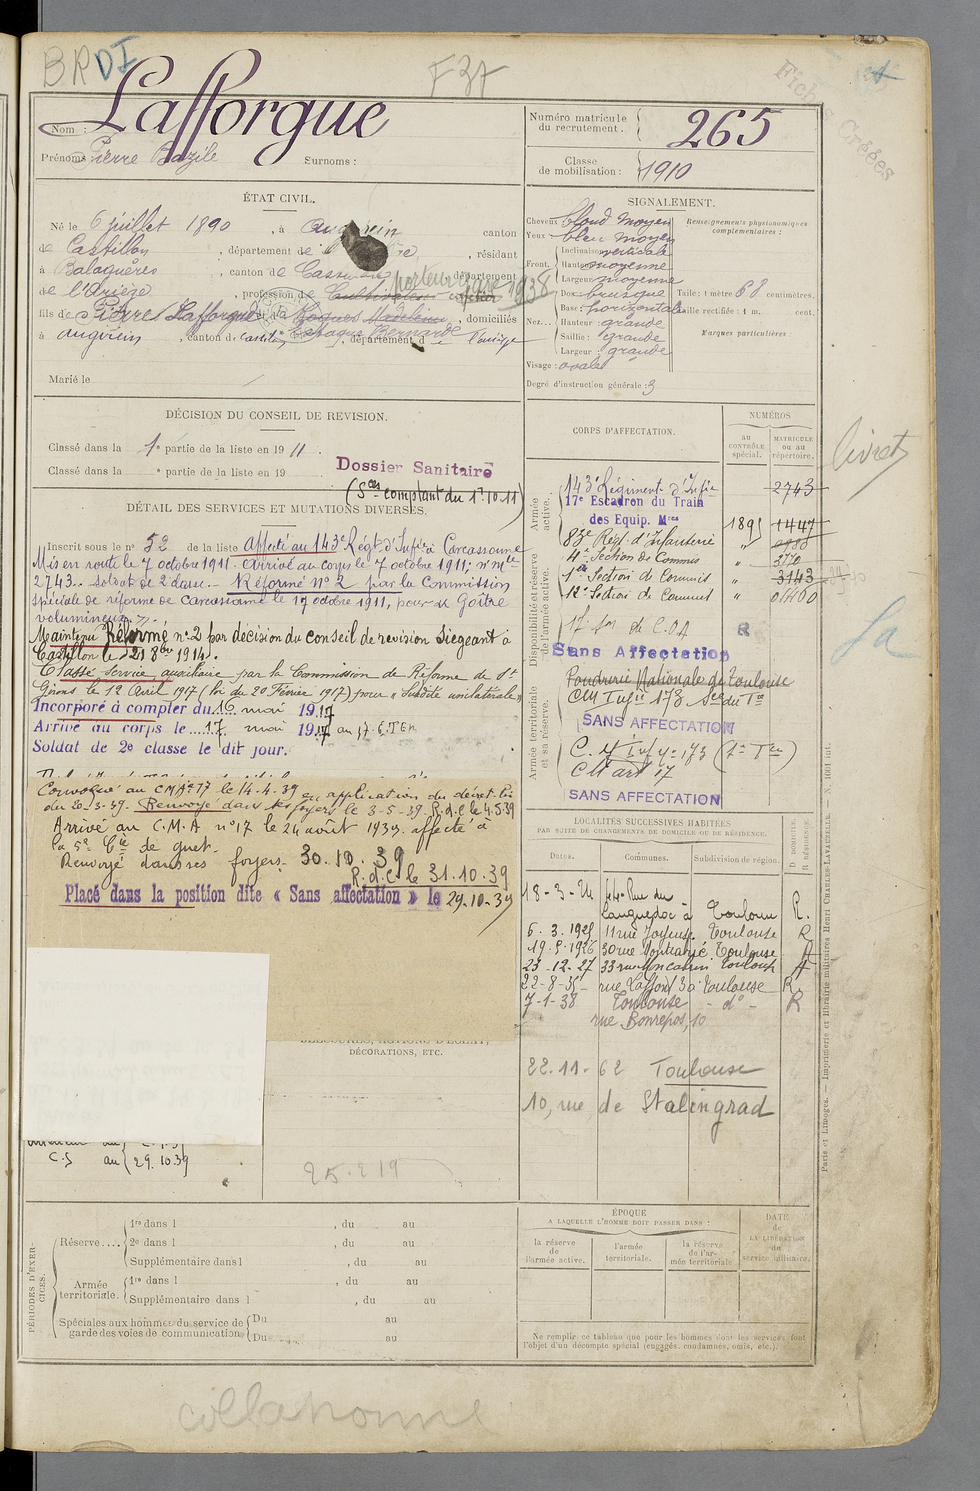 BR DI
F 37
Fiches Créées
Nom : Lafforgue
Prénoms : Pierre Bazile Surnoms :
Numéro matricule du recrutement. 265
Classe de mobilisation : 1910
ÉTAT CIVIL.
Né le 6 juillet 1890, à canton
de Castillon, département de , résidant
à Balaguères, canton de département
de l'Ariège, profession de Cultivateur
porteur 1938
fils de Pierre Lafforgue et de Madeleine, domiciliés
Bernarde
à augirein, canton de Castillon, département d l'ariège
Marié le
SIGNALEMENT.
Cheveux blond moyen
Yeux bleu moyen
Front. Inclinais. verticale
Hauteur moyenne
Largeur moyenne
Nez... Dos : brusque
Base : horizontale
Hauteur : grande
Saillie : grande
Largeur : grande
Visage : ovale
Degré d'instruction générale : 3
Renseignements physionomiques complémentaires :
Taille : 1 mètre 68 centimètres.
Taille rectifiée : 1 m. cent.
Marques particulières :
DÉCISION DU CONSEIL DE REVISION.
Classé dans la 1e partie de la liste en 1911.
Classé dans la e partie de la liste en 19
Dossier Sanitaire
(Sces comptant du 1er.10.11)
DÉTAIL DES SERVICES ET MUTATIONS DIVERSES.
Inscrit sous le n° 52 de la liste Affecté au 143e Régt. d'Infie à Carcassonne
Mis en route le 7 octobre 1911. arrivé au corps le 7 octobre 1911; n° mle
2743. soldat de 2e classe. Réformé N° 2 par la Commission
spéciale de réforme de Carcassonne le 17 octobre 1911, pour « Goître
volumineux ».
Maintenu Réformé n° 2 par décision du conseil de revision siegeant à
Castillon le 21 8bre 1914.
Classé service auxiliaire par la Commission de Réforme de St
Girons le 12 Avril 1917 (loi du 20 Février 1917) pour « surdité unilatérale »
Incorporé à compter du 16 mai 1917
Arrivé au corps le 17 mai 1917 au 17e E.T.Em
Soldat de 2e classe le dit jour.
Convoqué au CMA 17 le 4-4-39 en application du décret-loi
du 20-3-39. Renvoyé dans ses foyers le 3-5-39. R.d.c le 4.5.39
Arrivé au C.M.A n°17 le 24 août 1939. affecté à
la 5e Cie de guet.
Renvoyé dans ses foyers 30.10.39
R.d.c le 31.10.39
Placé dans la position dite « Sans affectation » le 29-10-39
DÉCORATIONS, ETC.
C.S au 29.10.39
CORPS D'AFFECTATION.
NUMÉROS
au CONTRÔLE spécial.
MATRICULE ou au répertoire.
Armée active.
143e Régiment d'Infie 2743
17e Escadron du Train
des Equip. Mres 1891 1447
Disponibilité et réserve de l'armée active.
83e Regt. d'Infanterie "
4e Section de Commis " 3770
1ère Section de Commis " 3143
12e Section de Commet "
Sans Affectation
Armée territoriale et sa réserve.
Poudrerie Nationale de Toulouse
CM Infie 173
SANS AFFECTATION
C. M Inf 173
CM art 17
SANS AFFECTATION
LOCALITÉS SUCCESSIVES HABITÉES
PAR SUITE DE CHANGEMENTS DE DOMICILE OU DE RÉSIDENCE.
Dates. Communes. Subdivision de région.
D. DOMICILE. R. RÉSIDENCE.
18-3-24 44 Rue du
Languedoc à Toulouse R.
6.3.1925 11 rue Joyeuse Toulouse R
19.5.1926 30 rue Toulouse
23-12-27 33 rue Toulouse
22-8-35 rue Laffont 3 à Toulouse R.
7-1-38 Toulouse - d° - R
rue Bonrepos, 10
22.11.62 Toulouse
10, rue de Stalingrad
livret
La
PÉRIODES D'EXERCICES.
Réserve.... 1re dans l , du au
2e dans l , du au
Supplémentaire dans l , du au
Armée territoriale. 1re dans l , du au
Supplémentaire dans l , du au
Spéciales aux hommes du service de garde des voies de communication Du au
Du au
ÉPOQUE
A LAQUELLE L'HOMME DOIT PASSER DANS :
la réserve de l'armée active.
l'armée territoriale.
la réserve de l'armée territoriale
DATE de LA LIBÉRATION du service militaire.
Ne remplir ce tableau que pour les hommes dont les services font
l'objet d'un décompte spécial (engagés, condamnés, omis, etc.).
Paris et Limoges. — Imprimerie et librairie militaires Henri CHARLES-LAVAUZELLE.